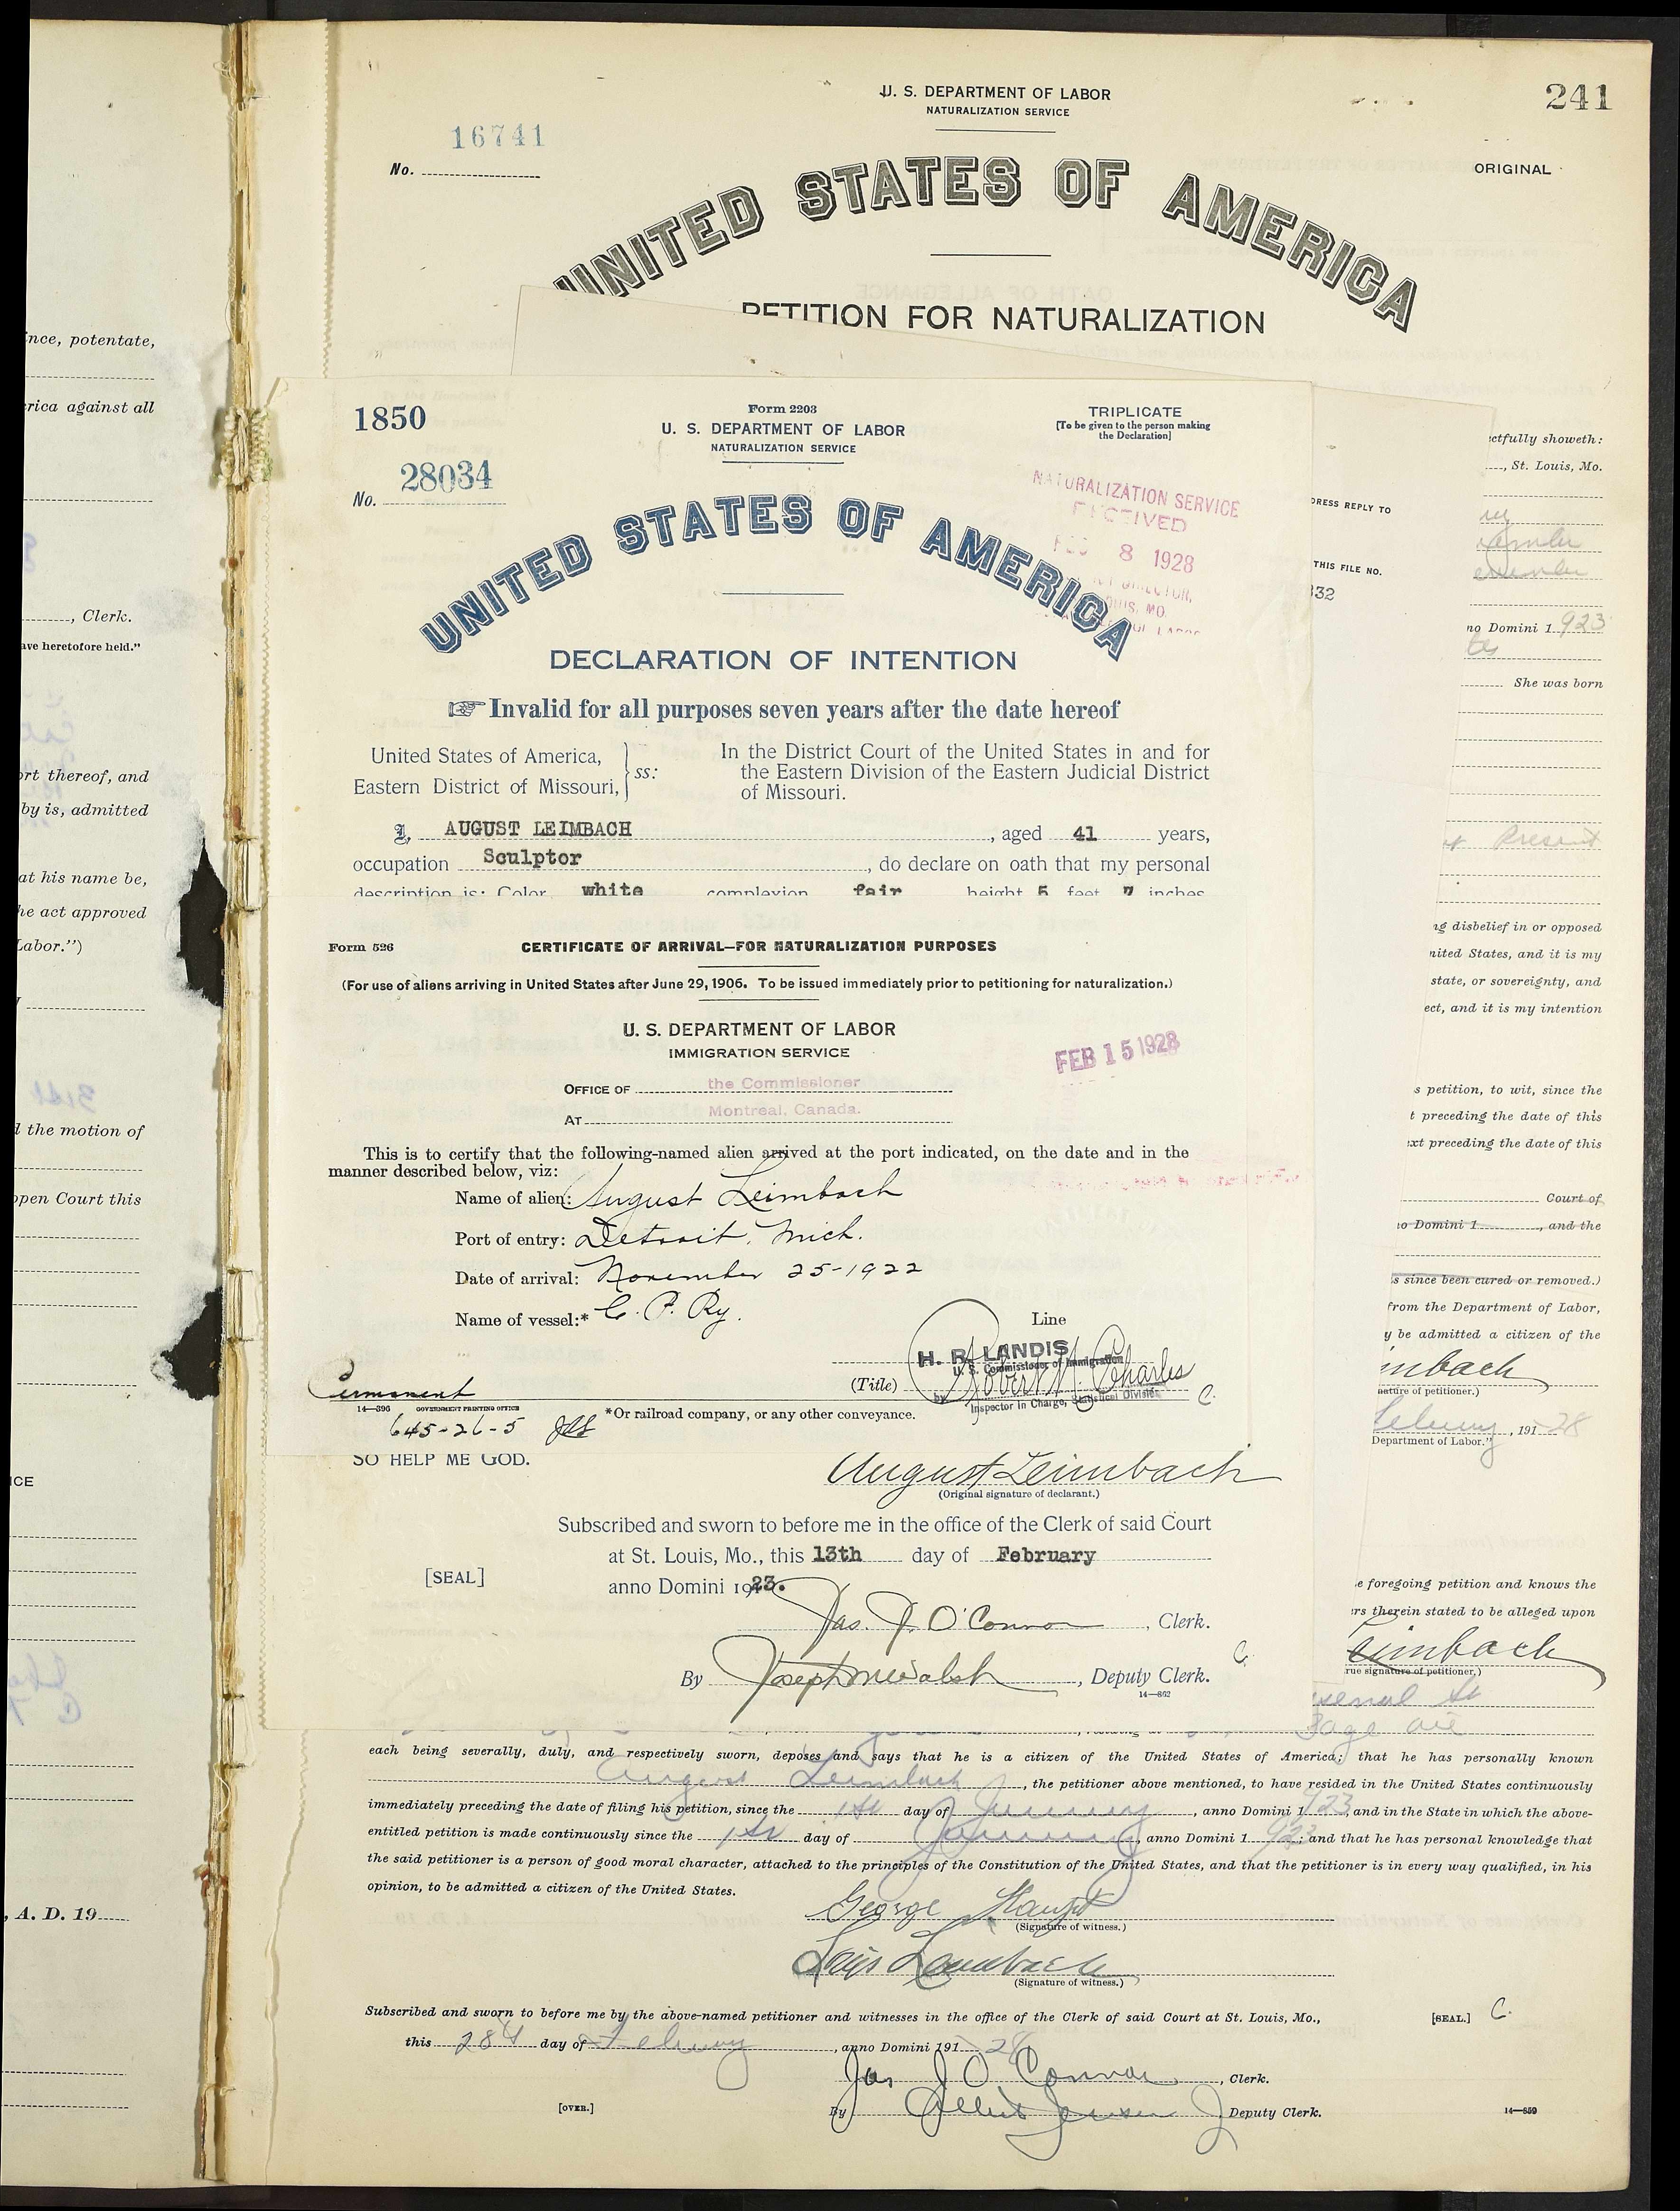 nce, potentate,
rica against all
, Clerk.
ave heretofore held."
rt thereof, and
by is, admitted
at his name be,
he act approved
Labor.")
31st
d the motion of
open Court this
ICE
, A. D. 19
U. S. DEPARTMENT OF LABOR
NATURALIZATION SERVICE
241
16741
No.
ORIGINAL
UNITED STATES OF AMERICA
PETITION FOR NATURALIZATION
1850
Form 2203
TRIPLICATE
U. S. DEPARTMENT OF LABOR
[To be given to the person making
the Declaration]
NATURALIZATION SERVICE
No. 28034
NATURALIZATION SERVICE
RECEIVED
8 1928
UNITED STATES OF AMERICA
DECLARATION OF INTENTION
☞ Invalid for all purposes seven years after the date hereof
United States of America,
Eastern District of Missouri, } ss:
In the District Court of the United States in and for
the Eastern Division of the Eastern Judicial District
of Missouri.
I, AUGUST LEIMBACH, aged 41 years,
occupation Sculptor, do declare on oath that my personal
description is: Color white complexion fair height 5 feet 7 inches
Form 526
CERTIFICATE OF ARRIVAL—FOR NATURALIZATION PURPOSES
(For use of aliens arriving in United States after June 29, 1906. To be issued immediately prior to petitioning for naturalization.)
U. S. DEPARTMENT OF LABOR
IMMIGRATION SERVICE
FEB 15 1928
OFFICE OF the Commissioner
AT Montreal, Canada.
This is to certify that the following-named alien arrived at the port indicated, on the date and in the
manner described below, viz:
Name of alien: August Leimbach
Port of entry: Detroit, Mich.
Date of arrival: November 25-1922
Name of vessel:* C. P. Ry.
Line
H. R. LANDIS
U. S. Commissioner of Immigration
(Title)
by Robert M. Charles
Inspector in Charge, Statistical Division
C.
Permanent
14—396 GOVERNMENT PRINTING OFFICE
*Or railroad company, or any other conveyance.
645-26-5
SO HELP ME GOD.
August Leimbach
(Original signature of declarant.)
Subscribed and sworn to before me in the office of the Clerk of said Court
at St. Louis, Mo., this 13th day of February
[SEAL]
anno Domini 1923.
Jas. J. O'Connor, Clerk.
By Joseph M Walsh, Deputy Clerk.
C.
14—862
ctfully showeth:
, St. Louis, Mo.
DRESS REPLY TO
THIS FILE NO.
332
no Domini 1923
She was born
at present
ng disbelief in or opposed
nited States, and it is my
state, or sovereignty, and
ect, and it is my intention
s petition, to wit, since the
t preceding the date of this
ext preceding the date of this
Court of
no Domini 1, and the
s since been cured or removed.)
from the Department of Labor,
y be admitted a citizen of the
mbach
nature of petitioner.)
, 191 28
Department of Labor."
e foregoing petition and knows the
ers therein stated to be alleged upon
eimbach
rue signature of petitioner.)
senal St
Page ave
each being severally, duly, and respectively sworn, deposes and says that he is a citizen of the United States of America; that he has personally known
August Leimbach, the petitioner above mentioned, to have resided in the United States continuously
immediately preceding the date of filing his petition, since the 1st day of January, anno Domini 1923, and in the State in which the above-
entitled petition is made continuously since the 1st day of January, anno Domini 1923; and that he has personal knowledge that
the said petitioner is a person of good moral character, attached to the principles of the Constitution of the United States, and that the petitioner is in every way qualified, in his
opinion, to be admitted a citizen of the United States.
George
(Signature of witness.)
(Signature of witness.)
Subscribed and sworn to before me by the above-named petitioner and witnesses in the office of the Clerk of said Court at St. Louis, Mo.,
[SEAL.] C.
this 28th day of February, anno Domini 191 28
Jas J O'Connor, Clerk.
[OVER.]
By Deputy Clerk.
14—859